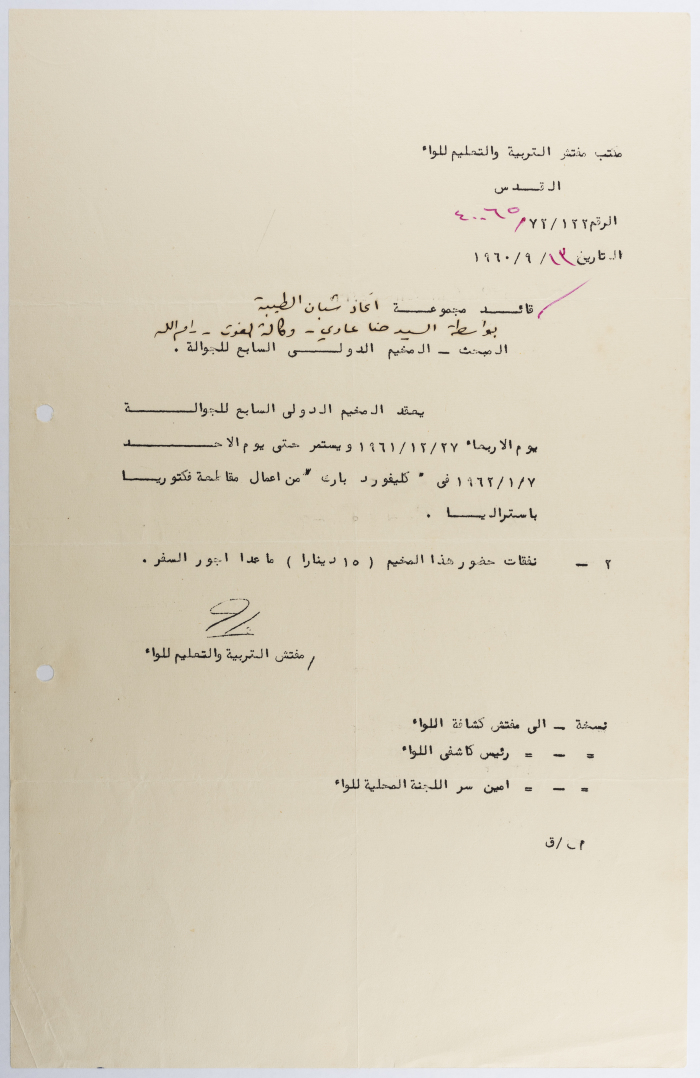 مكتب مفتش التربية والتعليم للواء
القدس
الرقم ٧٢/١٢٢/ ٤٠٠٦٥
التاريخ ١٣/ ٩/ ١٩٦٠
قائد مجموعة اتحاد شبان الطيبة
بواسطة السيد حنا عادي - وكالة الغوث - رام الله
المبحث - المخيم الدولى السابع للجوالة .
يعقد المخيم الدولى السابع للجوالة
يوم الاربعاء ١٩٦١/١٢/٢٧ ويستمر حتى يوم الاحد
١٩٦٢/١/٧ فى " كليفورد بارك " من اعمال مقاطعة فكتوريا
باستراليا .
٢ - نفقات حضور هذا المخيم ( ١٥ دينارا ) ما عدا اجور السفر .
/ مفتش التربية والتعليم للواء
نسخة - الى مفتش كشافة اللواء
= - = رئيس كاشفى اللواء
= - = امين سر اللجنة المحلية للواء
/ق